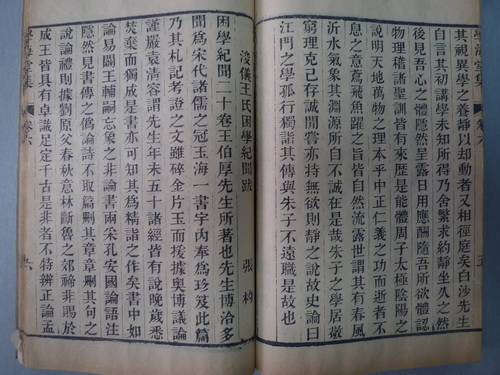 學海堂集 卷六 五
其視異學之養靜以却動者又相徑庭矣白沙先生
自言其初講學未知所得乃舍繁求約靜坐久之然
後見吾心之體隱然呈露日用應酬隨吾所欲體認
物理稽諸聖訓皆有來歷是能體周子太極陰陽之
說明天地萬物之理本乎中正仁義之功而逝者不
息之意鳶飛魚躍之旨皆自然流露世謂其有春風
沂水氣象其淵源所自不誠在是哉朱子之學居敬
窮理克己存誠閒嘗亦持無欲則靜之說故史論曰
江門之學孤行獨詣其傳與朱子不遠職是故也
浚儀王氏困學紀聞跋 張杓
困學紀聞二十卷王伯厚先生所著也先生博洽多
聞為宋代諸儒之冠玉海一書宇內奉為珍笈此篇
乃其札記考證之文雖碎金片玉而援據奧博議論
謹嚴袁清容謂先生年未五十諸經皆有說晚歲悉
焚棄而獨成是書亦可知其為精詣之作矣書中如
論易闢王輔嗣忘象之非論書兩采孔安國論語注
隱然見書傳之偽論詩不取篇刪其章章刪其句之
說論禮則據劉原父春秋意林斷魯之郊禘非賜於
成王皆具有卓識足定千古是非者不待辨正論孟
學海堂集 卷六 六